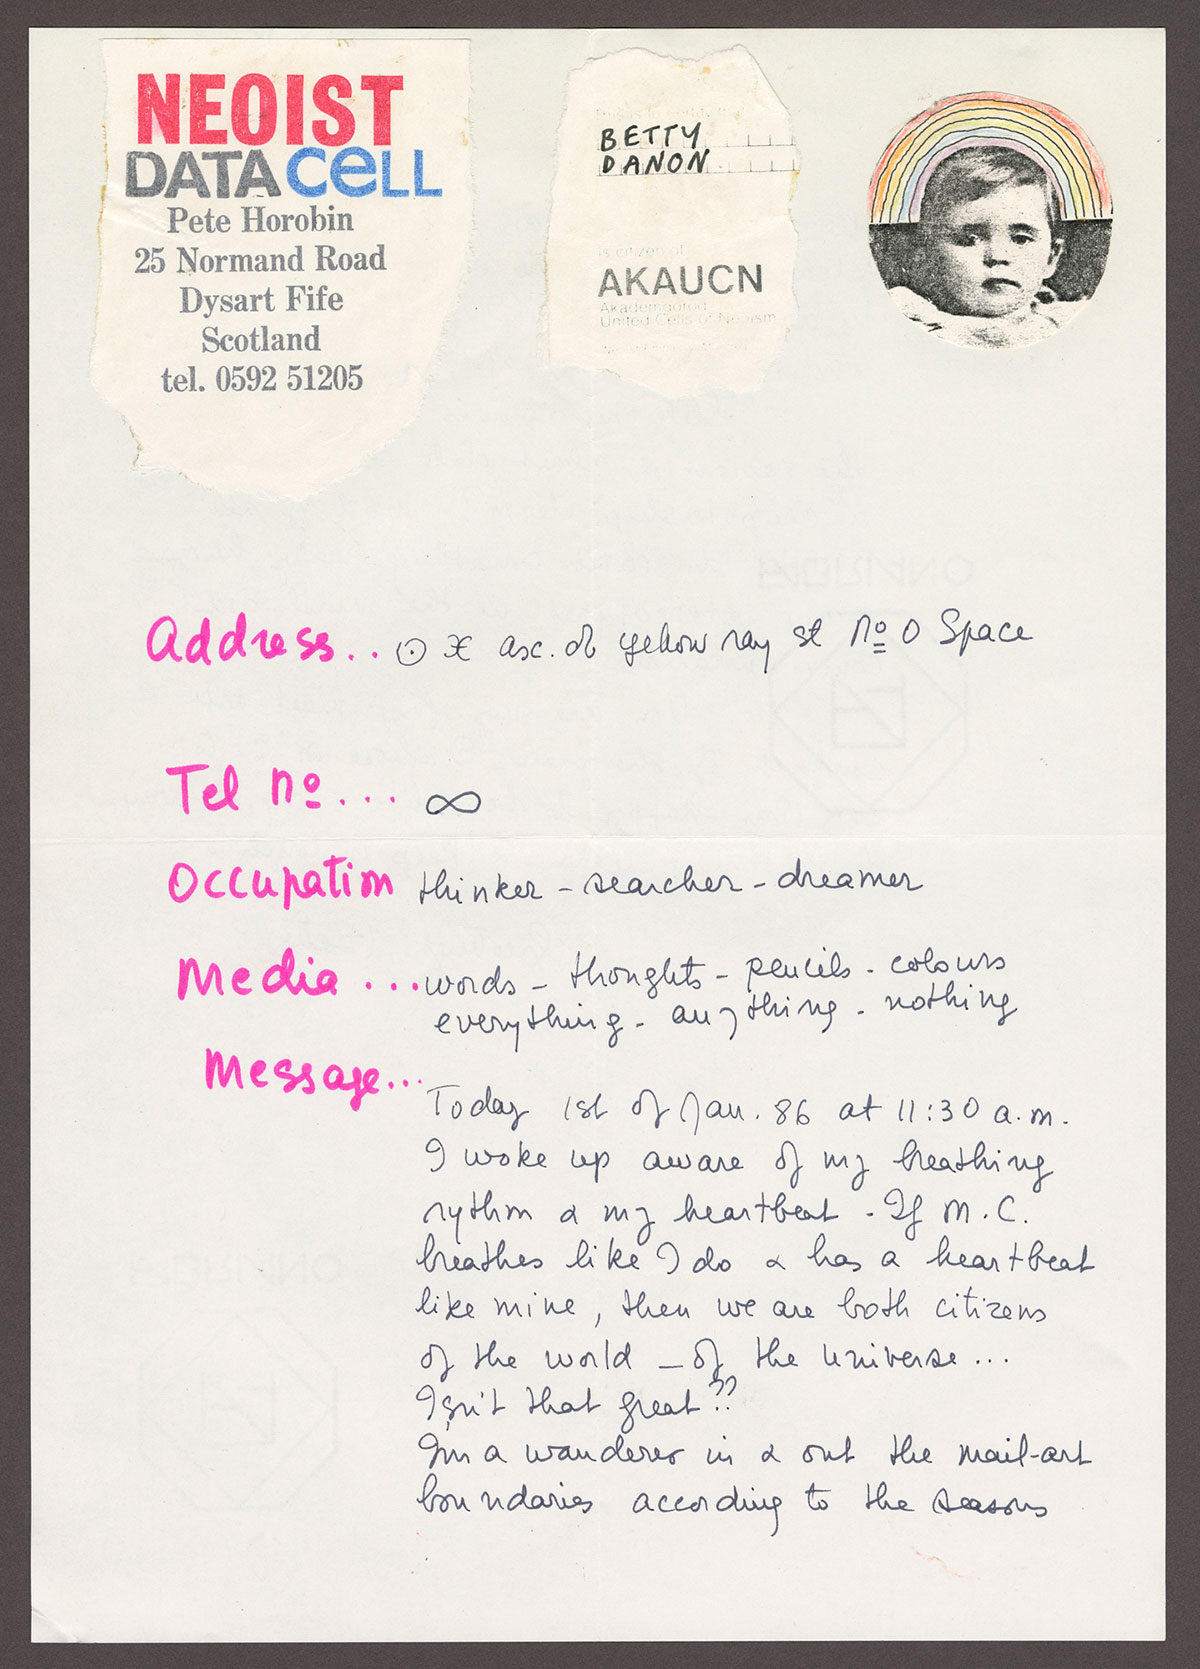 NEOIST
DATA CELL
Pete Horobin
25 Normand Road
Dysart Fife
Scotland
tel. 0592 51205
BETTY
DANON
is citizen of
AKAUCN
Akademgorod
United Cells of Neoism
Address.. ☉ ♓ asc. of yellow ray st nº 0 Space
Tel nº... ∞
Occupation thinker - searcher - dreamer
Media ...words - thoughts - pencils - colours
everything - anything - nothing
Message...
Today 1st of Jan. 86 at 11:30 a.m.
I woke up aware of my breathing
rythm & my heartbeat - If M.C.
breathes like I do & has a heartbeat
like mine, then we are both citizens
of the world - of the universe...
Isn't that great??
I'm a wanderer in & out the mail-art
boundaries according to the seasons